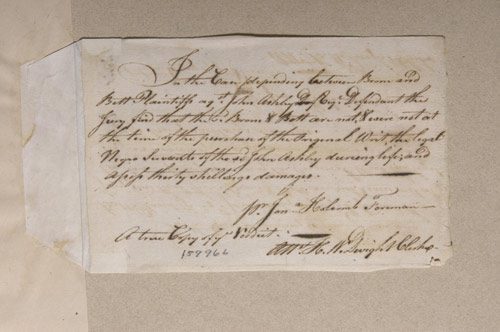 In the Case depending between Brom and
Bett Plaintiffs agt. John Ashley Esqr. Defendant the
Jury find that the sd. Brom & Bett are not, & were not at
the time of the purchase of the Original Writ, the legal
Negro Servants of the sd John Ashley during life, and
assess thirty shillings damages.
pr. Jona. Holcomb Foreman
A true Copy of ye Verdict.
Attr. H. W. Dwight Clerk
157966